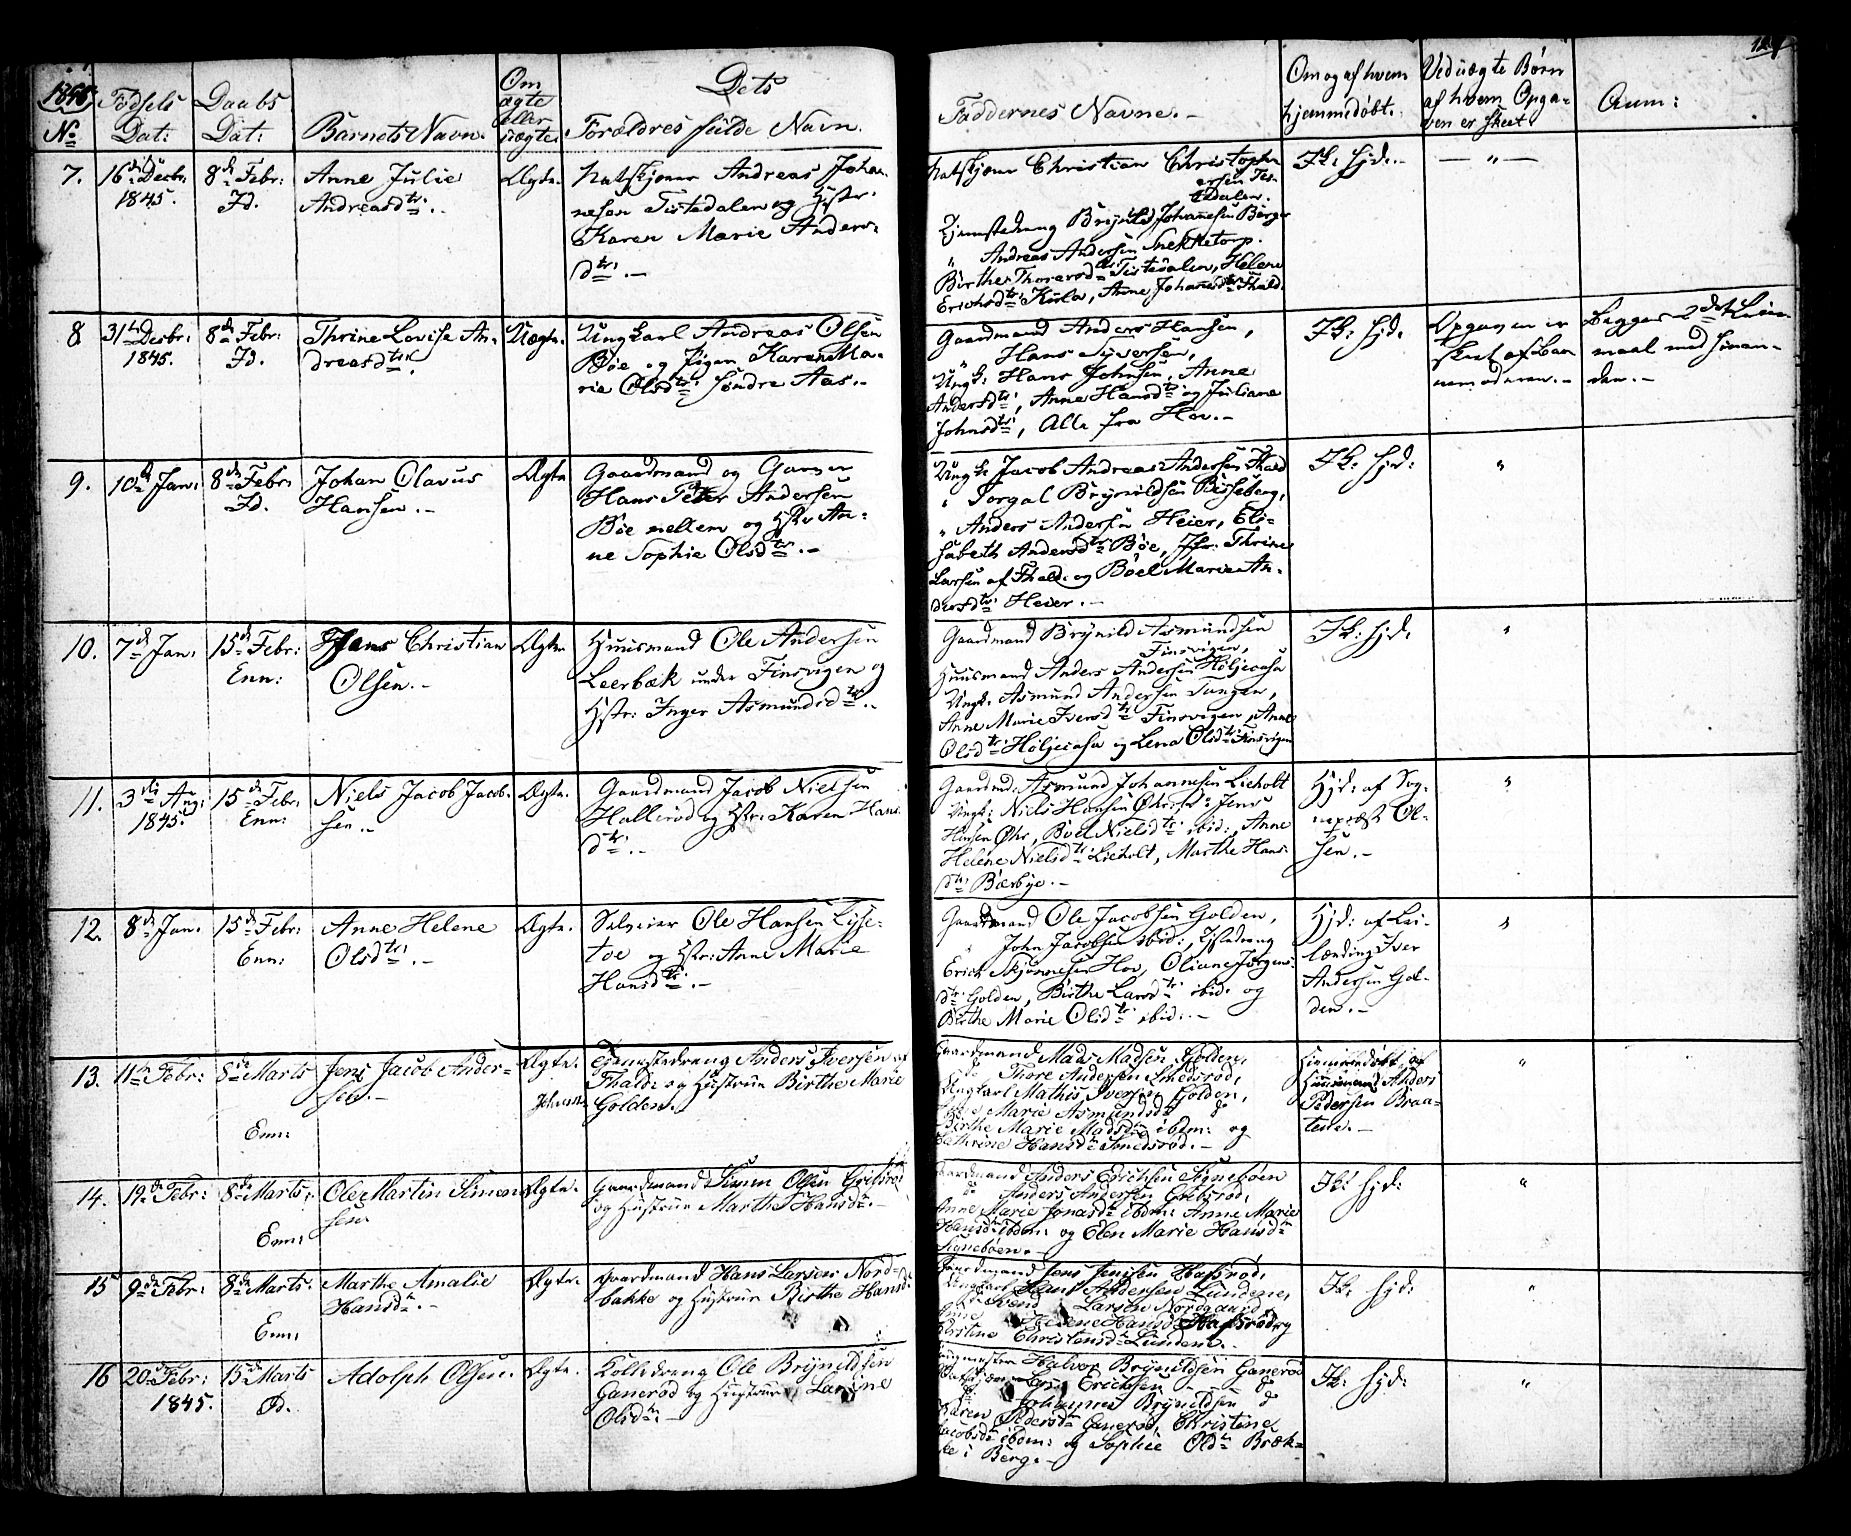 1846
No
Fødsels
Dat:
Daabs
Dat:
Barnets Navn.
Om
ægte
eller
uægte
Dets
Forældres fulde Navn.
Faddernes Navne. -
Om og af hvem
hjemmedøbt.
Ved uægte Børn
af hvem Opga-
ven er skeet
Anm:
7.
16de Decbr:
1845.
8de Febr:
Fd.
Anne Julie
Andreasdtr. -
Ægte.
Natskjører Andreas Johan-
nesen Tistedalen og Hstr:
Karen Marie Anders-
dtr. -
Natskjører Christian Christoph-
ersen Tis-
tedalen.
Tjenestedreng Brynild Johannesen Berger
" Andreas Andersen Snekketorp.
Birthe Thoresdtr Tistedalen, Helene
Erichsdtr:
Anne Johannesdtr Fhald.
Ik: hjd. -
- " -
8
31te Decbr:
1845.
8de Febr:
Fd.
Thrine Lovise An-
dreasdtr.
Uægte.
Ungkarl Andreas Olsen
Bøe og Pigen Karen Ma-
rie Olsdtr: Søndre Aas. -
Gaardmand Anders Hansen,
" Hans Syversen,
Ungk: Hans Johnsen, Anne
Andersdtr:, Anne Hansdtr og Juliane
Johnsdtr:, Alle fra Hov. -
Ik: hjd:
Opgaven er
skeet af Bar-
nemoderen. -
Begges 2det Leier-
maal med hinan-
den. -
9.
10de Jan:
8de Febr:
Fd.
Johan Olavus
Hansen. -
Ægte
Gaardmand og Garver
Hans Peter Andersen
Bøe mellem og Hstr An-
ne Sophie Olsdtr. -
Ungk: Jacob Andreas Andersen Fhald
" Torgal Brynildsen Bisseberg,
" Anders Andersen Heier, Eli-
sabeth Andersdtr Bøe, Jfr: Thrine
Larsen af Fhald: og Bøel Marie An-
dersdtr: Heier. -
Ik: hjd:
"
10.
7de Jan:
15de Febr:
Enn:
Hans Christian
Olsen. -
Ægte
Huusmand Ole Andersen
Leerbæk under Finsvigen og
Hstr: Inger Asmundsdtr. -
Gaardmand Brynild Asmundsen
Finsvigen,
Huusmand Anders Andersen Høljecasa
Ungk: Asmund Andersen Tangen,
Anne Marie Iversdtr: Finsvigen, Anne
Olsdtr: Høljecasa og Lena Olsdtr: Finsvigen
Ik: hjd:
"
11.
3die Aug:
1845.
15de Febr:
Enn:
Niels Jacob Jacob-
sen. -
Ægte.
Gaardmand Jacob Nielsen
Hallerød og Hstr: Karen Hans-
dtr. -
Gaardmd. Asmund Johannesen Lieholt
Ungk: Niels Hansen Øhr, Jens
Hansen Øhr, Bøel Nielsdtr: ibid:, Anne
Helene Nielsdtr: Lieholt, Marthe Hans-
dtr: Bærbye. -
Hjd: af Sog-
nepræst Ol-
sen. -
"
12.
8de Jan.
15de Febr:
Enn:
Anne Helene
Olsdtr. -
Ægte.
Selveier Ole Hansen Lyse-
toe og Hstr: Anne Marie
Hansdtr. -
Gaardmand Ole Jacobsen Golden,
" John Jacobsen ibid:, Tjstedreng
Erich Skjønnesen Hov, Oliane Jørgens-
dtr: Golden, Birthe Larsdtr: ibid: og
Birthe Marie Olsdtr ibid: -
Hjd: af Lei-
lænding Iver
Andersen Gol-
den. -
"
13.
11te Febr:
8de Marts
Enn:
Jens Jacob Ander-
sen. -
Ægte.
Tjenestedreng Anders Iversen af
Fhald: og Hustrue Birthe Marie
Golden.
Gaardmand Mads Madsen Golden,
do Thore Andersen Smedsrød,
Ungkarl Mathis Iversen Golden,
Marie Asmundsdtr do
Birthe Marie Madsdtr ibdm: og
Cathrine Hansdtr Smedsrød. -
Hjemmedøbt af
Huusmand Anders
Pedersen Braa-
tene. -
"
14.
19de Febr:
8de Marts,
Enn:
Ole Martin Simon-
sen
Ægte.
Gaardmand Simon Olsen Gribsrød
og Hustrue Marthe Hansdtr. -
Gaardmand Anders Erichsen Signebøen
do Anders Andersen Gribsrød,
Anne Marie Jonasdtr ibdm: Anne Marie
Hansdtr ibdm: og Elen Marie Hansdtr
Signebøen. -
Ik: hjd:
"
15
9de Febr:
8de Marts.
Enn:
Marthe Amalie
Hansdtr. -
Ægte.
Gaardmand Hans Larsen Nord-
bakke og Hustrue Birthe Hansd:
Gaardmand Jens Jensen Hafsrød,
Ungkarl Hans Andersen Lundene,
do Svend Larsen Nordgaard,
Helene Hansdtr Hafsrød og
Kirstine Christensdtr Lundene. -
Ik: hjd:
"
16
20de Febr:
1845.
15de Marts
Ød.
Adolph Olsen.
Ægte.
Kulledreng Ole Brynildsen
Ganerød og Hustrue Larsine
Olsdtr. -
Halvor Brynildsen Ganerød
Erichsen do
do Johannes Brynildsen do
Karen Pedersdtr Ganerød, Christine
Jacobsdtr ibdm: og Sophie Olsdtr Bræk-
ke i Berg. -
Ik: hjd:
"